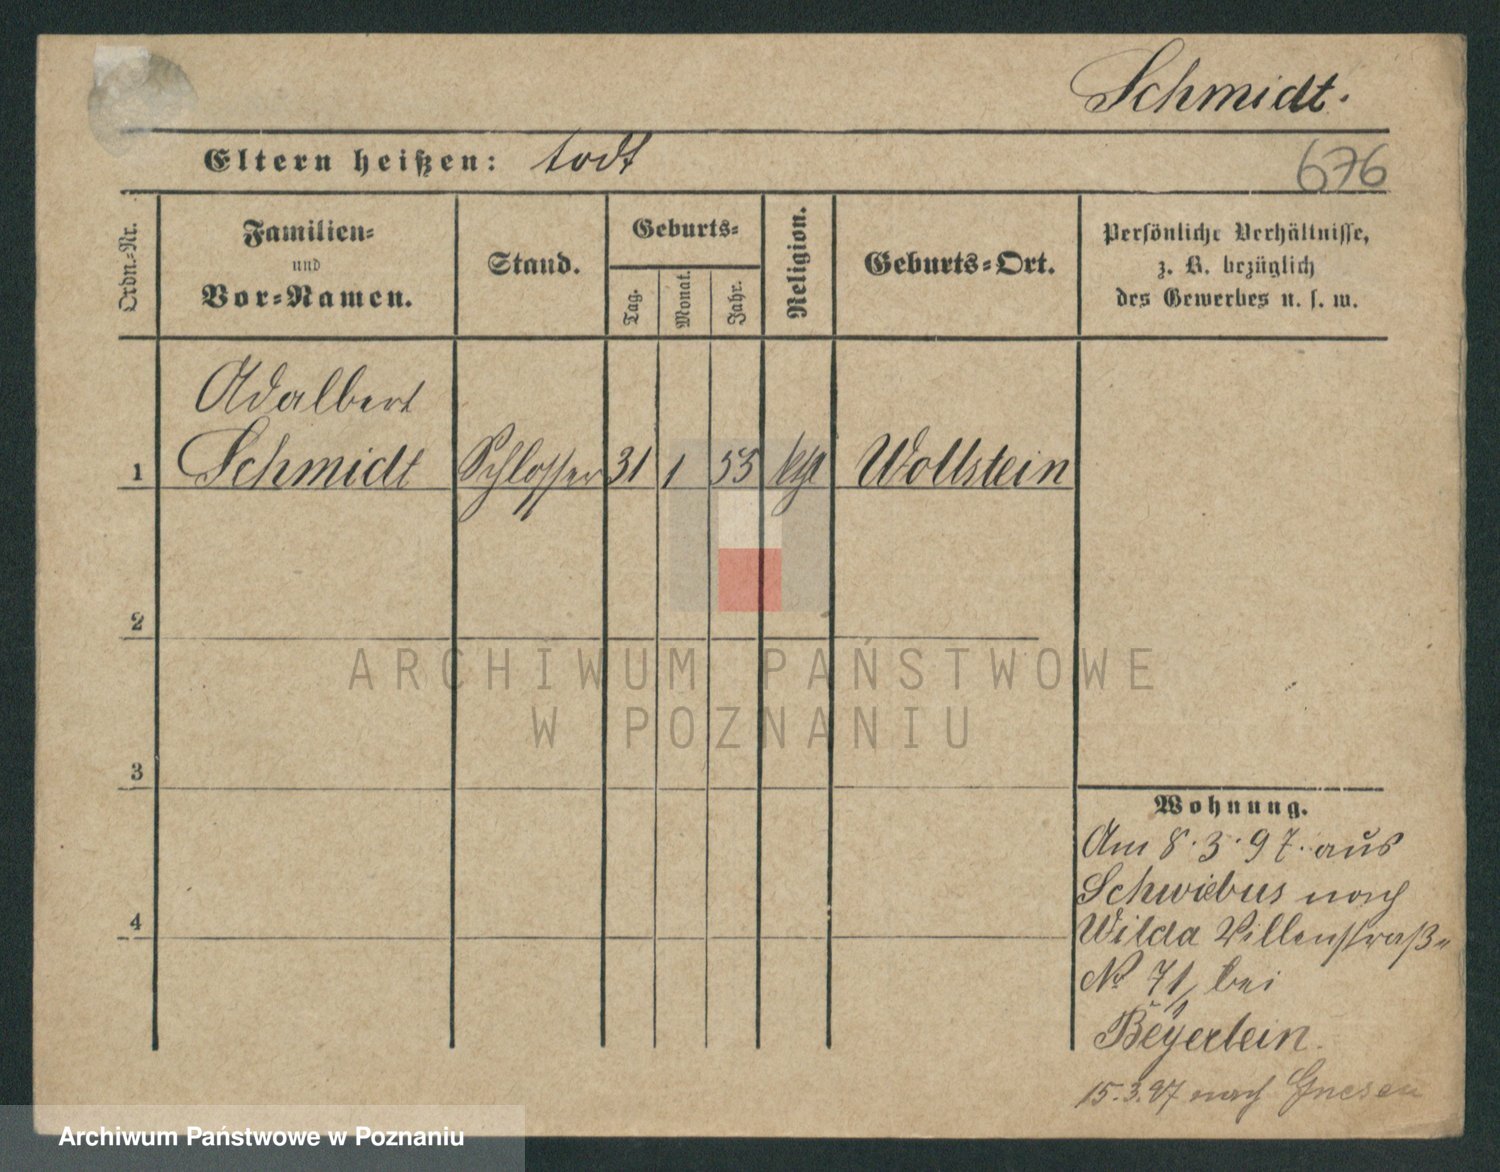 Schmidt.
Eltern heißen: todt
676
Ordn.-Nr.
Familien-
und
Vor-Namen.
Stand.
Geburts-
Tag.
Monat.
Jahr.
Religion.
Geburts-Ort.
Persönliche Verhältnisse,
z. B. bezüglich
des Gewerbes u. s. w.
Adalbert
1 Schmidt Schlosser 31 1 55 ktħ Wollstein
2
ARCHIWUM PAŃSTWOWE
W POZNANIU
3
Wohnung.
Am 8.3.97. aus
Schwiebus nach
4
Wilda Villenstraße
No 71, bei
Beyerlein.
15.3.97 nach Gnesen
Archiwum Państwowe w Poznaniu